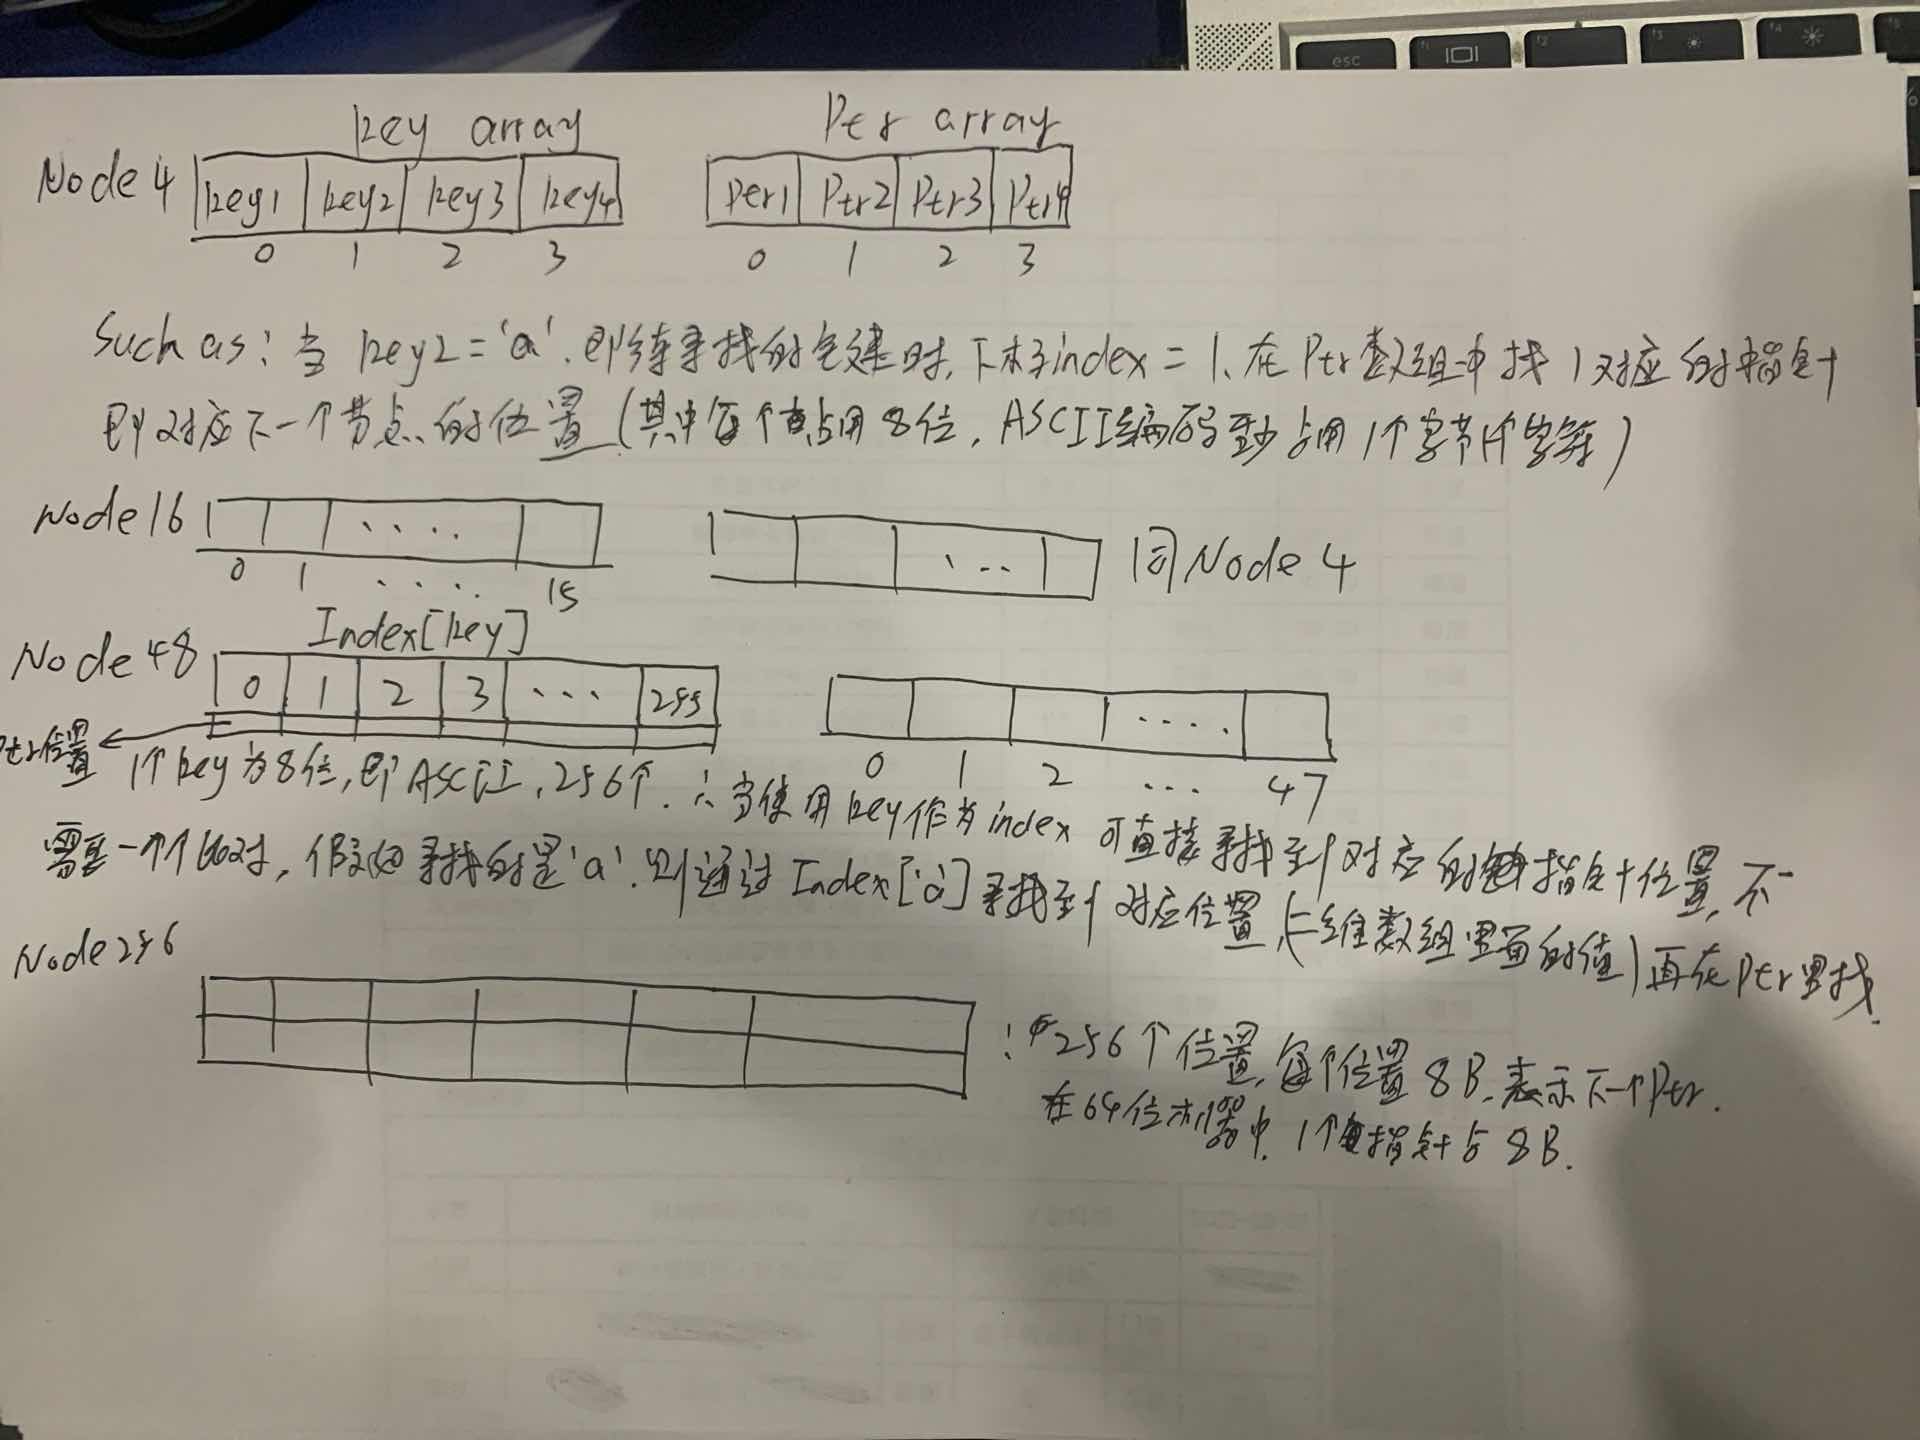 esc
key array Ptr array
Node 4 key1 key2 key3 key4 Ptr1 Ptr2 Ptr3 Ptr4
0 1 2 3 0 1 2 3
Such as: 当 key2 = 'a'. 即待寻找的关键时, 下标index = 1. 在 Ptr 数组中找 1 对应的指针
即对应下一个节点的位置 (其中每个占用 8位, ASCII编码至少占用 1个字节1个字符)
Node 16 .... ... 同Node 4
0 1 .... 15
Index[key]
Node 48 0 1 2 3 ... 255 ....
0 1 2 ... 47
Ptr位置
1个key为8位, 即ASCII, 256个. ∴当使用key作为index 可直接寻找到对应的指针位置, 不
需要一个个比对, 假设寻找的是'a'. 则通过 Index['a'] 寻找到对应位置, (二维数组里面的值) 再在Ptr里找.
Node 256
: 256个位置, 每个位置 8B. 表示下一个Ptr.
在64位机器中. 1个指针占 8B.